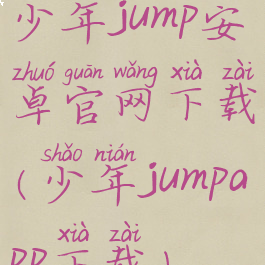 少年jump安
zhuó guān wǎng xià zài
卓官网下载
shǎo nián
(少年jumpa
xià zài
pp下载)